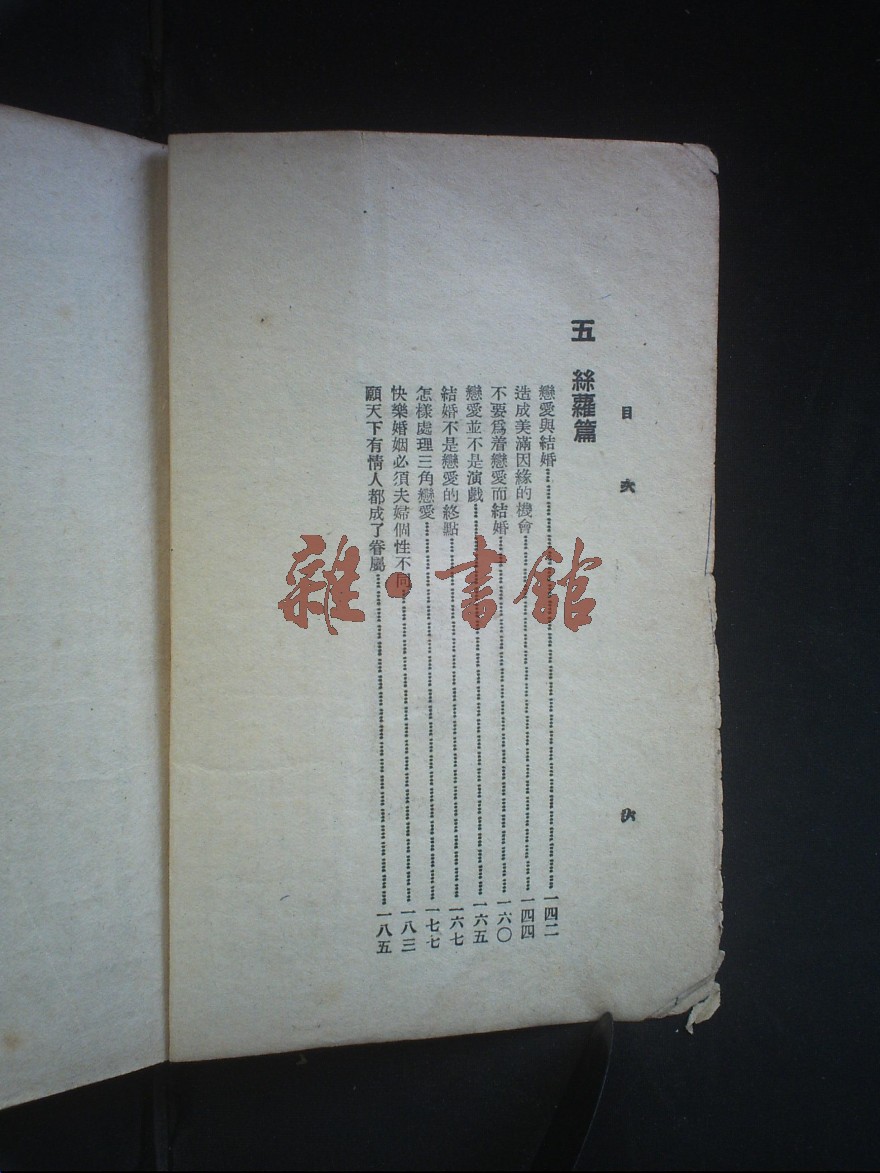 目次 六
五 絲蘿篇
戀愛與結婚……一四二
造成美滿因緣的機會……一四四
不要爲着戀愛而結婚……一六〇
戀愛並不是演戲……一六五
結婚不是戀愛的終點……一六七
怎樣處理三角戀愛……一七七
快樂婚姻必須夫婦個性不同……一八三
願天下有情人都成了眷屬……一八五
雜·書館